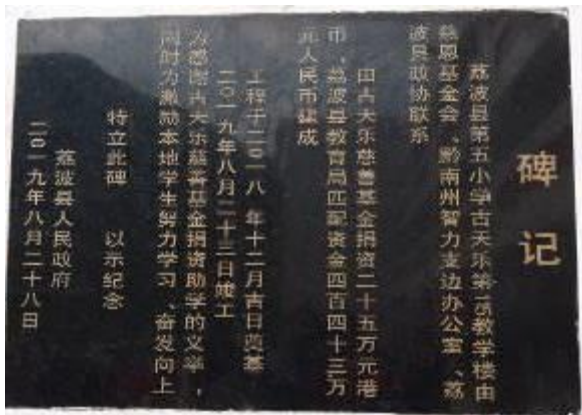 碑记
荔波县第五小学古天乐第 教学楼由
慈恩基金会、黔南州智力支边办公室、荔
波县政协联系
由古天乐慈善基金捐资二十五万元港
币，荔波县教育局匹配资金四百四十三万
元人民币建成
工程于二〇一八年十二月吉日奠基
二〇一九年八月二十三日竣工
为感谢古天乐慈善基金捐资助学的义举，
同时为激励本地学生努力学习、奋发向上
特立此碑 以示纪念
荔波县人民政府
二〇一九年八月二十八日